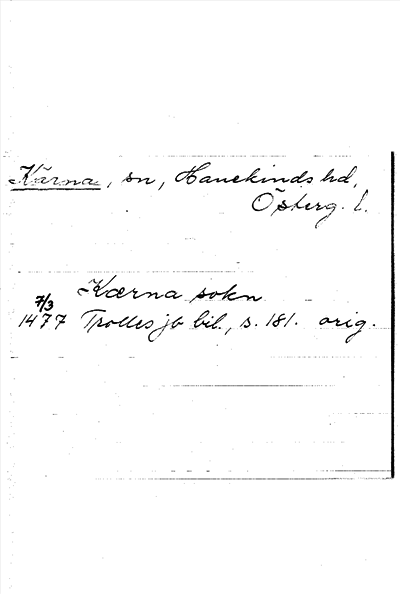 Kärna, sn, Hanekinds hd,
Österg. l.
Kærna sokn
7/3
1477 Trolles jb bil., s. 181. orig.